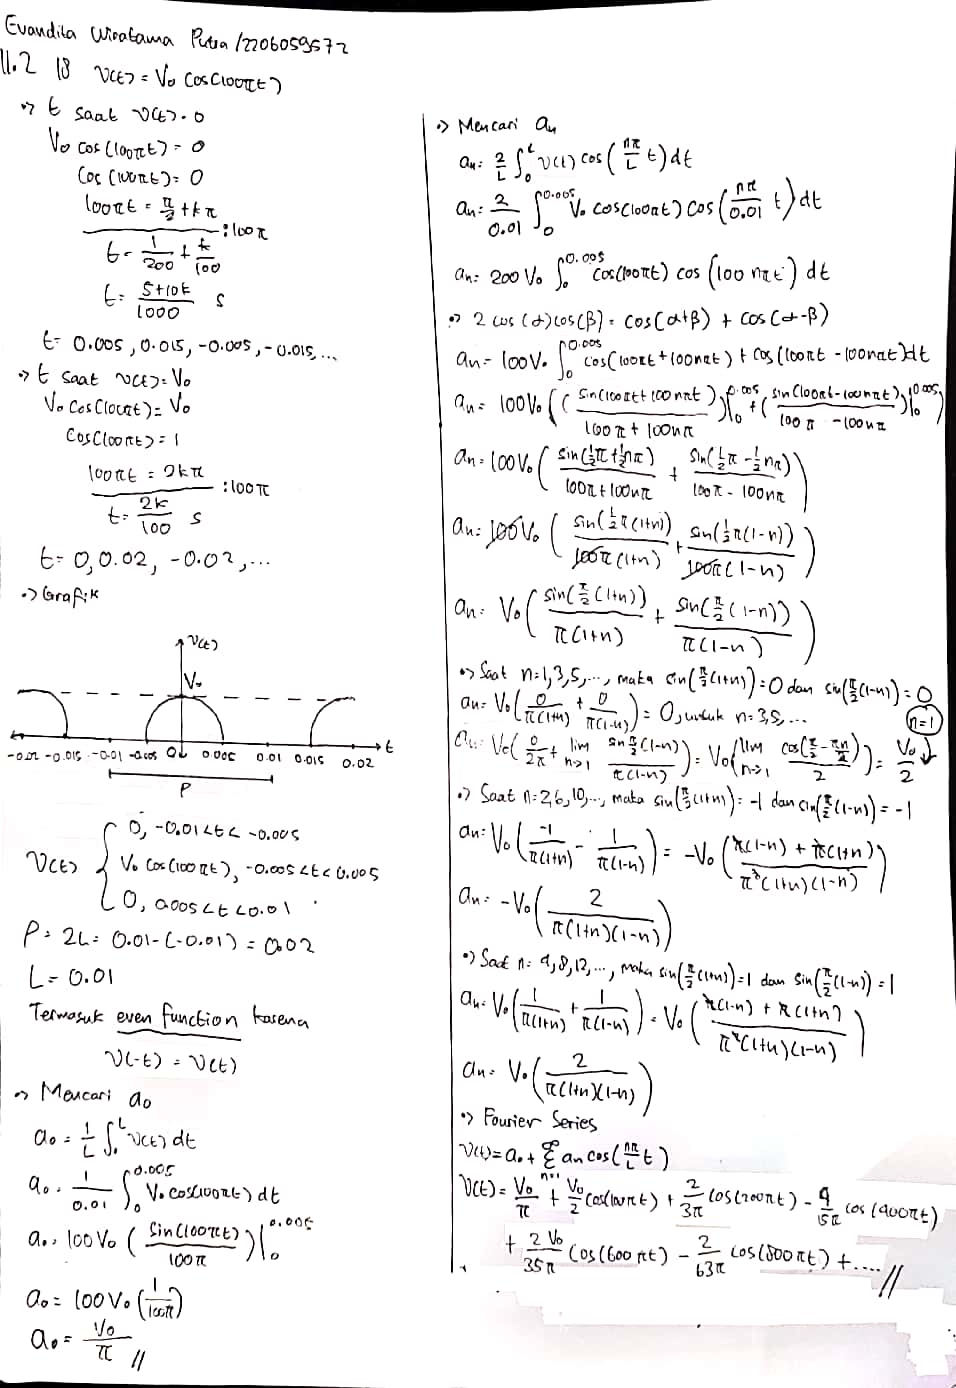 Evandita Wiratama Putra /2206059572
11.2 18 v(t) = V₀ cos(100πt)
·> t saat v(t) = 0
V₀ cos(100πt) = 0
cos(100πt) = 0
100πt = π/2 + kπ
:100π
t = 1/200 + k/100
t = (5+10k)/1000 s
t = 0.005, 0.015, -0.005, -0.015, ...
·> t saat v(t) = V₀
V₀ cos(100πt) = V₀
cos(100πt) = 1
100πt = 2kπ
:100π
t = 2k/100 s
t = 0, 0.02, -0.02, ...
·> Grafik
v(t)
V₀
-0.02 -0.015 -0.01 -0.005 0 0.005 0.01 0.015 0.02 t
P
v(t) { 0, -0.01<t<-0.005
V₀ cos(100πt), -0.005<t<0.005
0, 0.005<t<0.01
P = 2L = 0.01-(-0.01) = 0.02
L = 0.01
Termasuk even function karena
v(-t) = v(t)
·> Mencari a₀
a₀ = 1/L ∫₀^L v(t) dt
a₀ = 1/0.01 ∫₀^0.005 V₀ cos(100πt) dt
a₀ = 100V₀ (sin(100πt)/100π)|₀^0.005
a₀ = 100V₀ (1/100π)
a₀ = V₀/π //
·> Mencari aₙ
aₙ = 2/L ∫₀^L v(t) cos(nπ/L t) dt
aₙ = 2/0.01 ∫₀^0.005 V₀ cos(100πt) cos(nπ/0.01 t) dt
aₙ = 200V₀ ∫₀^0.005 cos(100πt) cos(100nπt) dt
·> 2 cos(α)cos(β) = cos(α+β) + cos(α-β)
aₙ = 100V₀ ∫₀^0.005 cos(100πt+100nπt) + cos(100πt-100nπt) dt
aₙ = 100V₀ ((sin(100πt+100nπt)/(100π+100nπ))|₀^0.005 + (sin(100πt-100nπt)/(100π-100nπ))|₀^0.005)
aₙ = 100V₀ (sin(½π+½nπ)/(100π+100nπ) + sin(½π-½nπ)/(100π-100nπ))
aₙ = 100V₀ (sin(½π(1+n))/(100π(1+n)) + sin(½π(1-n))/(100π(1-n)))
aₙ = V₀ (sin(π/2(1+n))/(π(1+n)) + sin(π/2(1-n))/(π(1-n)))
·> Saat n=1,3,5,..., maka sin(π/2(1+n))=0 dan sin(π/2(1-n))=0
aₙ = V₀(0/(π(1+n)) + 0/(π(1-n))) = 0, untuk n=3,5,... n=1
aₙ = V₀(0/2π + lim n→1 sin π/2(1-n)/(π(1-n))) = V₀(lim n→1 cos(π/2-πn/2)/2) = V₀/2
·> Saat n=2,6,10,..., maka sin(π/2(1+n))=-1 dan sin(π/2(1-n))=-1
aₙ = V₀(-1/(π(1+n)) - 1/(π(1-n))) = -V₀((π(1-n)+π(1+n))/(π²(1+n)(1-n)))
aₙ = -V₀(2/(π(1+n)(1-n)))
·> Saat n=4,8,12,..., maka sin(π/2(1+n))=1 dan sin(π/2(1-n))=1
aₙ = V₀(1/(π(1+n)) + 1/(π(1-n))) = V₀((π(1-n)+π(1+n))/(π²(1+n)(1-n)))
aₙ = V₀(2/(π(1+n)(1-n)))
·> Fourier Series
v(t) = a₀ + Σ_{n=1}^∞ aₙ cos(nπ/L t)
v(t) = V₀/π + V₀/2 cos(100πt) + 2/3π cos(200πt) - 2/15π cos(400πt)
+ 2V₀/35π cos(600πt) - 2/63π cos(800πt) + .... //